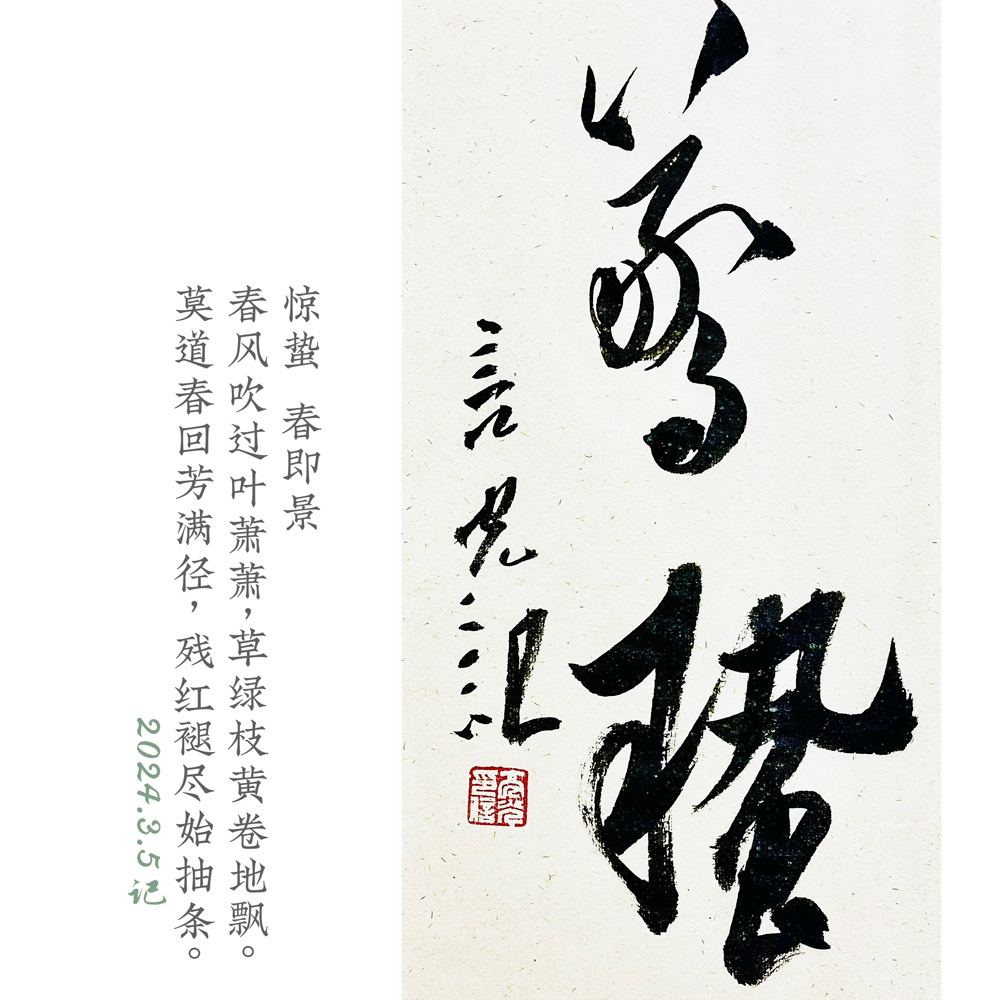 驚蟄
言光記
惊蛰 春即景
春风吹过叶萧萧，草绿枝黄卷地飘。
莫道春回芳满径，残红褪尽始抽条。
2024.3.5记